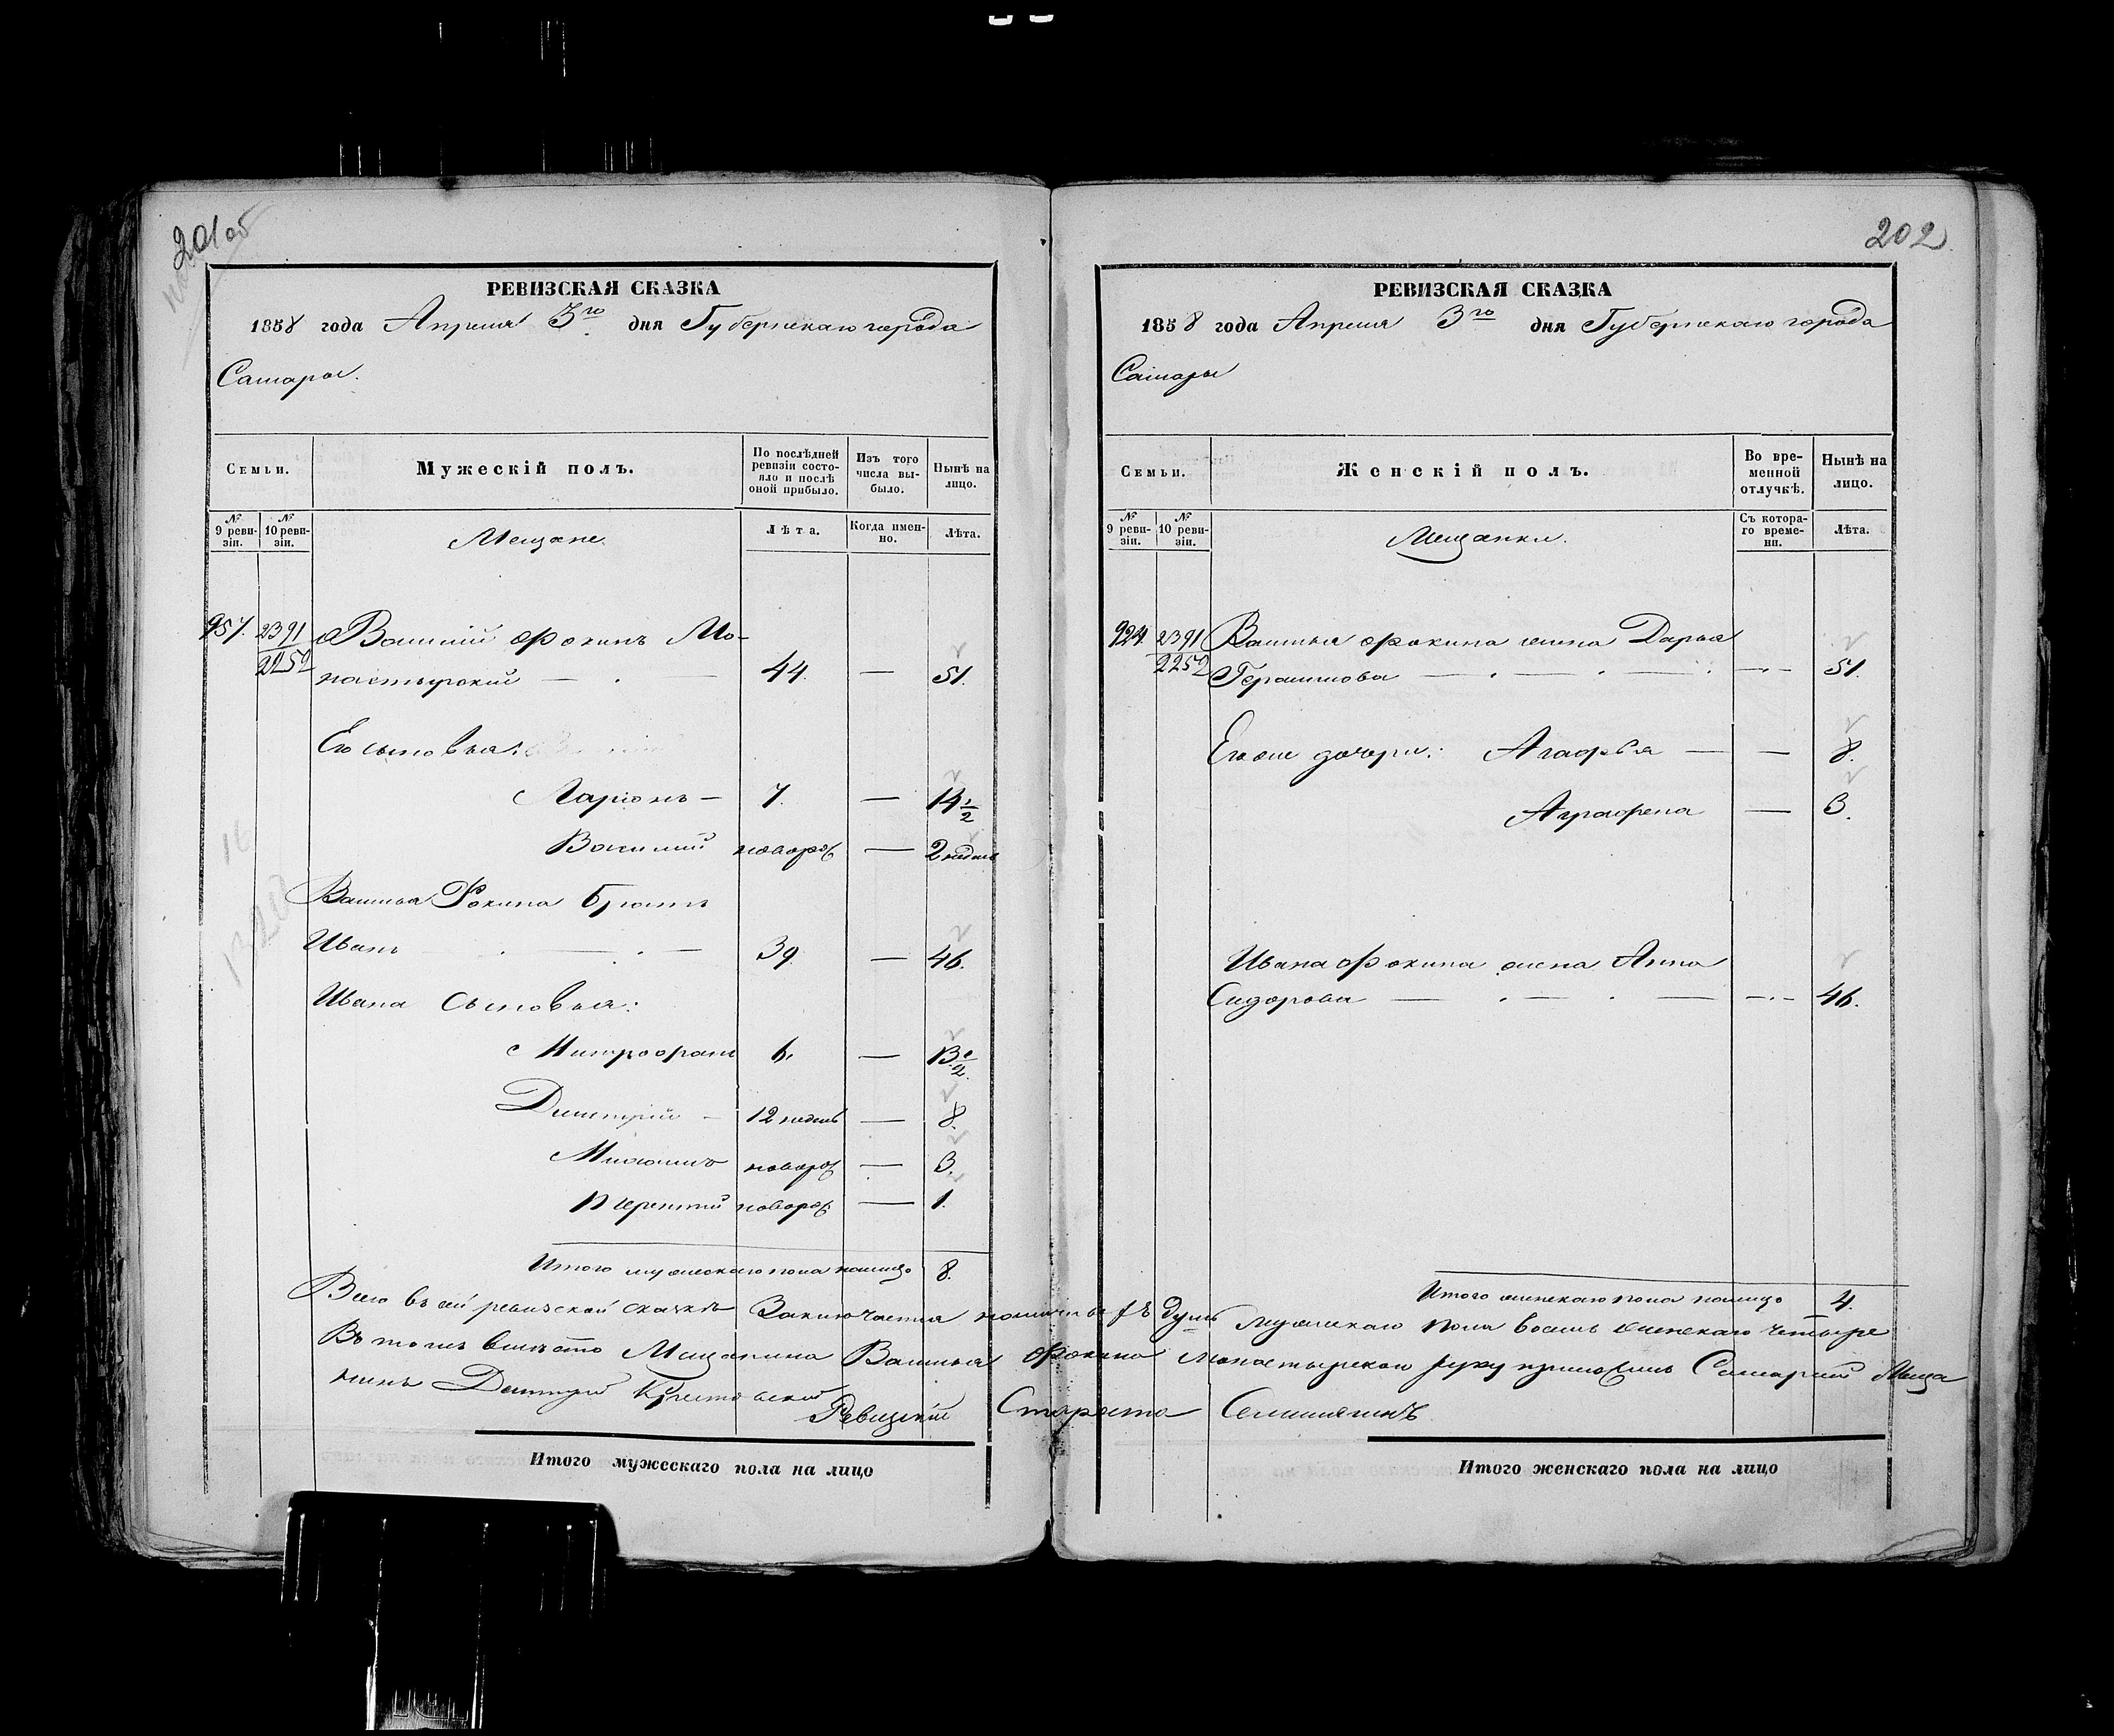 201об
РЕВИЗСКАЯ СКАЗКА
1858 года Апреля 3го дня Губернскаго города
Самары.
Семьи.
Мужескій полъ.
По послѣдней ревизіи состояло и послѣ оной прибыло.
Изъ того числа выбыло.
Нынѣ на лицо.
№ 9 ревизіи.
№ 10 ревизіи.
Мещане
Лѣта.
Когда именно.
Лѣта.
957. 2391 Василий Фокинъ Мо-
2252 настырский — 44. — 51.
Его сыновья:
Ларіонъ — 7. — 14 1/2
Василий новорож — 2 недель
Василья Фокина братъ
Иванъ — 39. — 46.
Ивана сыновья:
Митрофанъ 6. — 13 1/2
Димитрій — 12 недель — 8.
новорож — 3.
Терентий новорож — 1.
Итого мужескаго пола налицо 8.
202
РЕВИЗСКАЯ СКАЗКА
1858 года Апреля 3го дня Губернскаго города
Самары
Семьи.
Женскій полъ.
Во временной отлучкѣ.
Нынѣ на лицо.
№ 9 ревизіи.
№ 10 ревизіи.
Мещанки.
Съ котораго времени.
Лѣта.
924. 2391 Василья Фокина жена Дарья
2252 Герасимова — — 51.
Его же дочери: Агафья — — 8.
Аграфена — 3.
Ивана Фокина жена Анна
Сидорова — — 46.
Итого женскаго пола налицо 4.
Всего въ сей ревизской сказкѣ Заключается наличныхъ душъ мужескаго пола восемь женскаго четыре
Въ томъ вместо Мещанина Василья Фокина Монастырскаго руку приложилъ Самарский Меща
нинъ Дмитрий
Ревизский Староста
Итого мужескаго пола на лицо
Итого женскаго пола на лицо